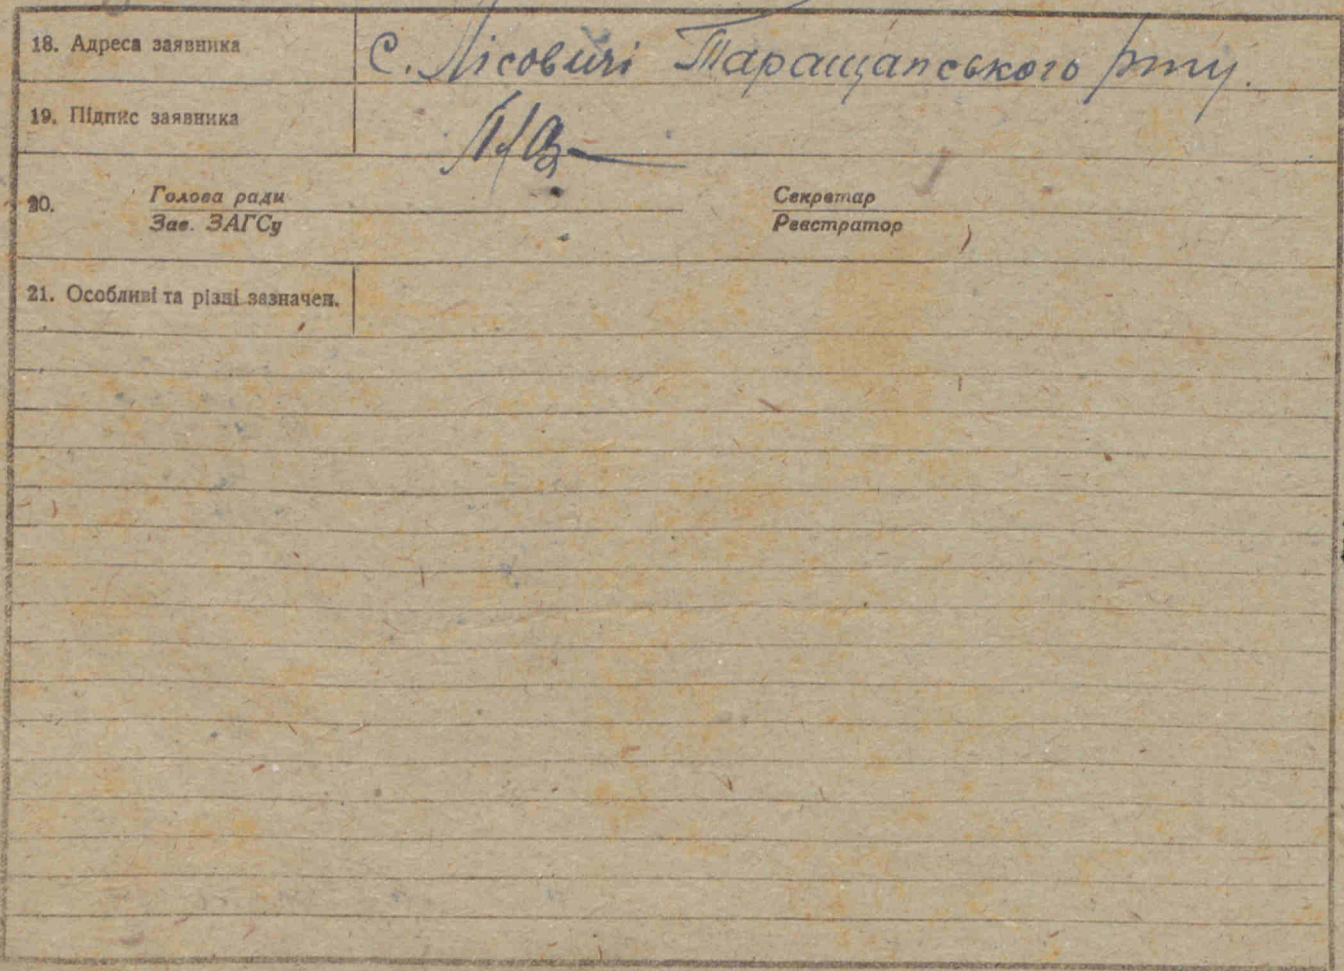 18. Адреса заявника С. Лісовичі Таращанського р-ну.
19. Підпис заявника
20. Голова ради Секретар
Зав. ЗАГСу Реєстратор
21. Особливі та різні зазначен.